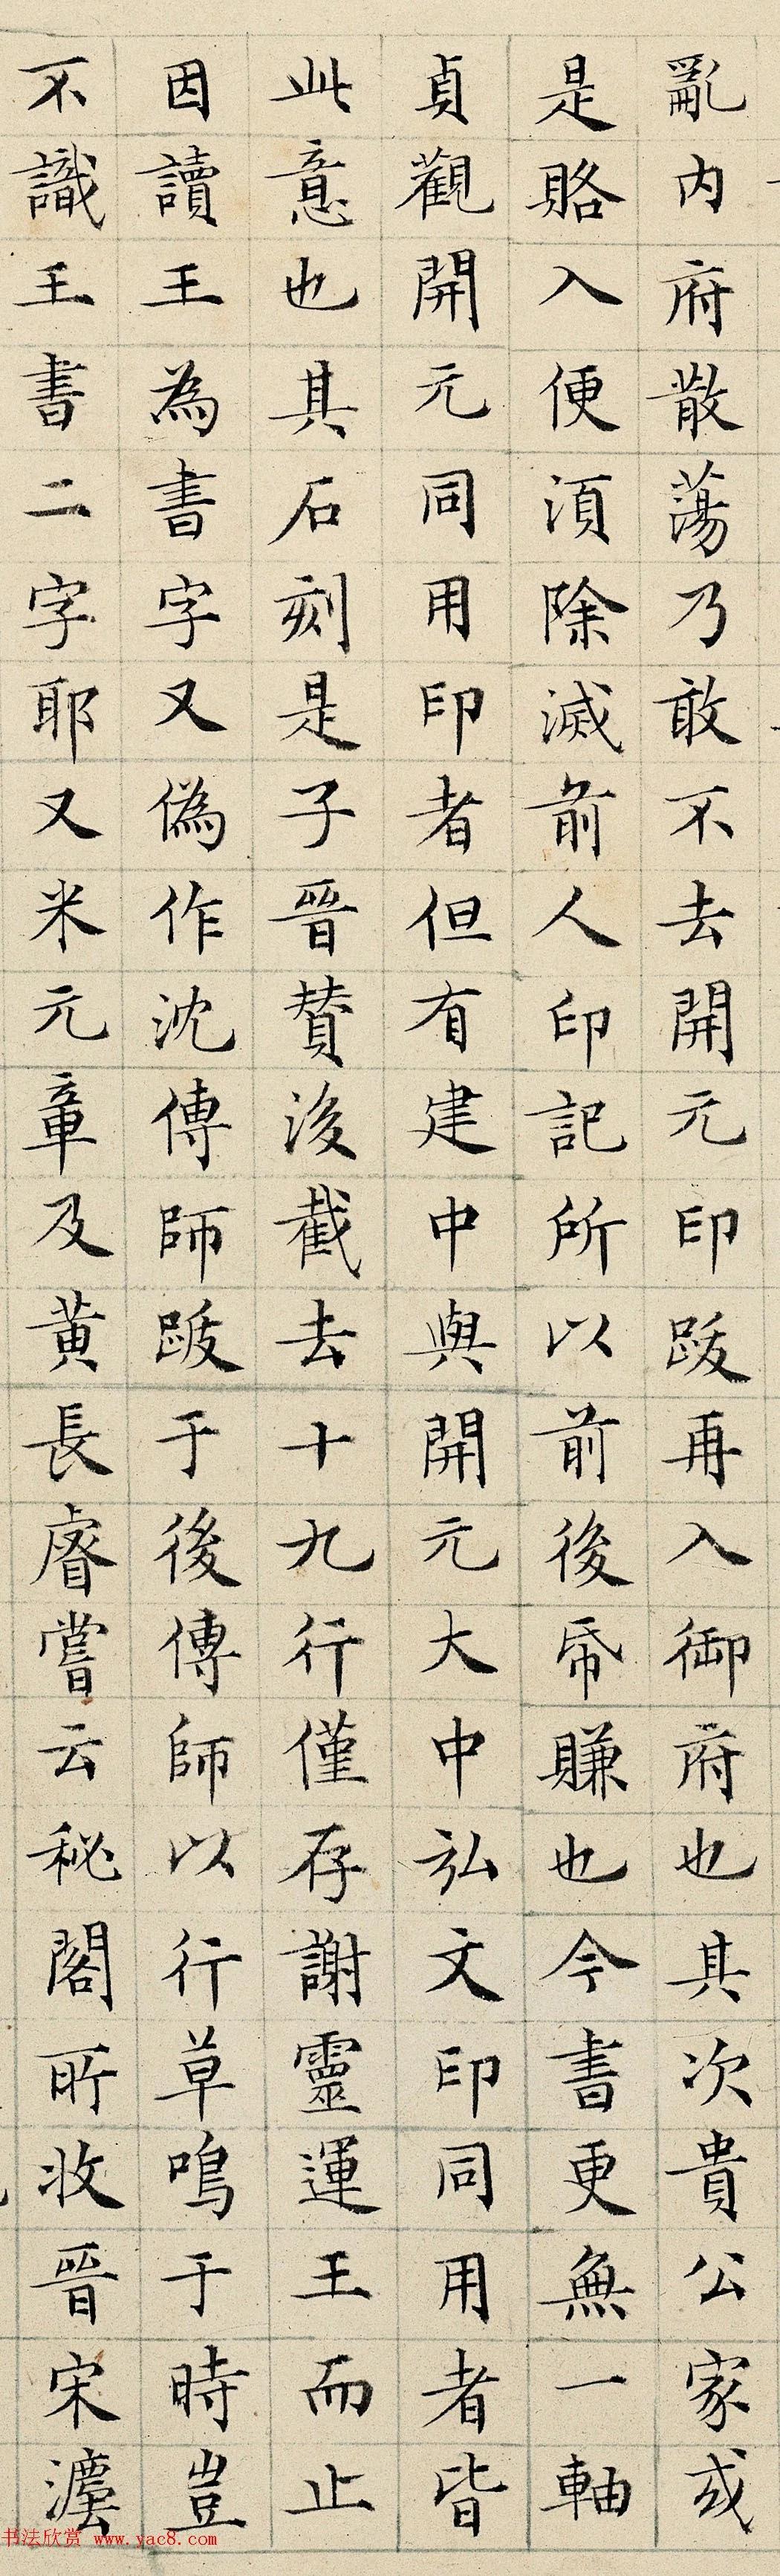 亂内府散蕩乃敢不去開元印跋再入御府也其次貴公家或
是賂入便須除滅前人印記所以前後帋賺也今書更無一軸
貞觀開元同用印者但有建中與開元大中弘文印同用者皆
此意也其石刻是子晉賛後截去十九行僅存謝靈運王而止
因讀王為書字又偽作沈傳師跋于後傳師以行草鳴于時豈
不識王書二字耶又米元章及黄長睿嘗云秘閣所收晉宋灋
书法欣赏 www.yac8.com